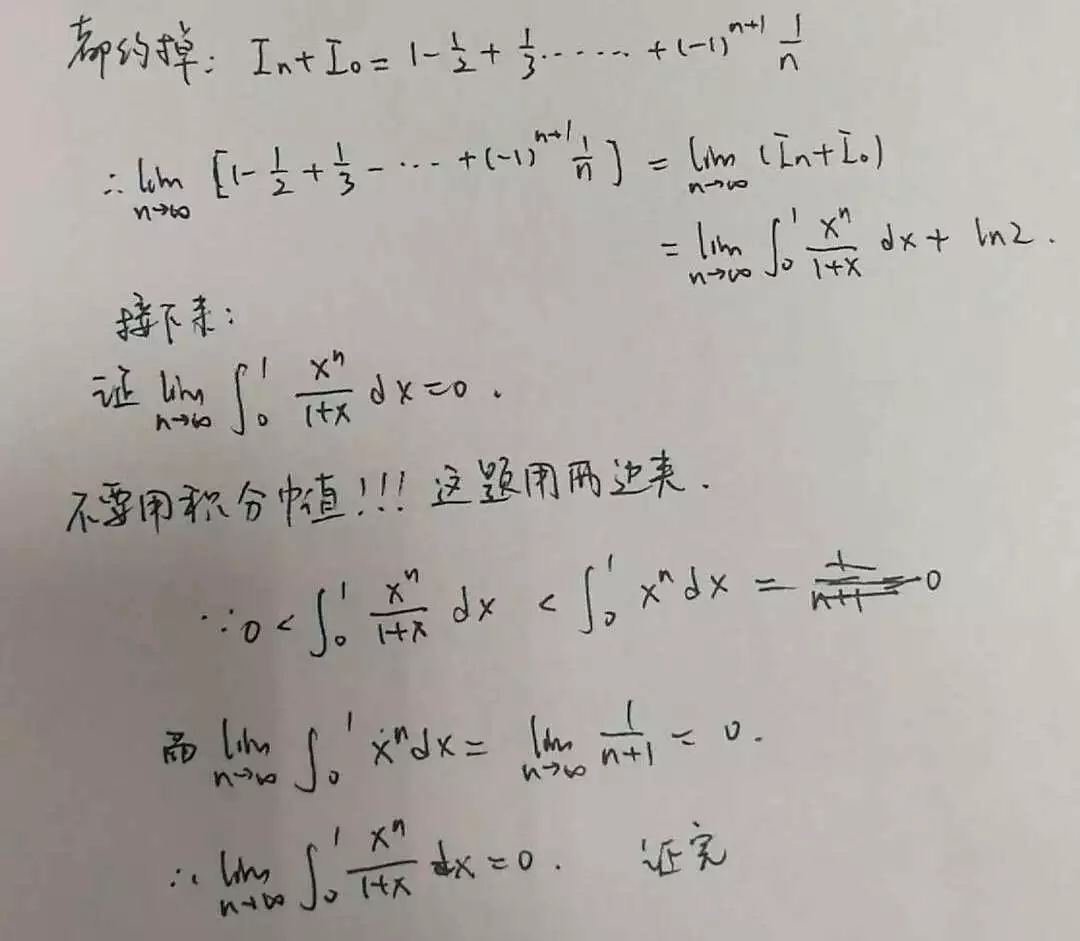 都约掉: In+I₀=1-1/2+1/3……+(-1)^(n+1) 1/n
∴ lim n→∞ [1-1/2+1/3-…+(-1)^(n+1) 1/n] = lim n→∞ (In+I₀)
= lim n→∞ ∫₀¹ xⁿ/(1+x) dx + ln2.
接下来:
证 lim n→∞ ∫₀¹ xⁿ/(1+x) dx=0.
不要用积分中值!!! 这题用两边夹.
∵ 0 < ∫₀¹ xⁿ/(1+x) dx < ∫₀¹ xⁿdx =
而 lim n→∞ ∫₀¹ xⁿdx = lim n→∞ 1/(n+1) = 0.
∴ lim n→∞ ∫₀¹ xⁿ/(1+x) dx=0. 证完